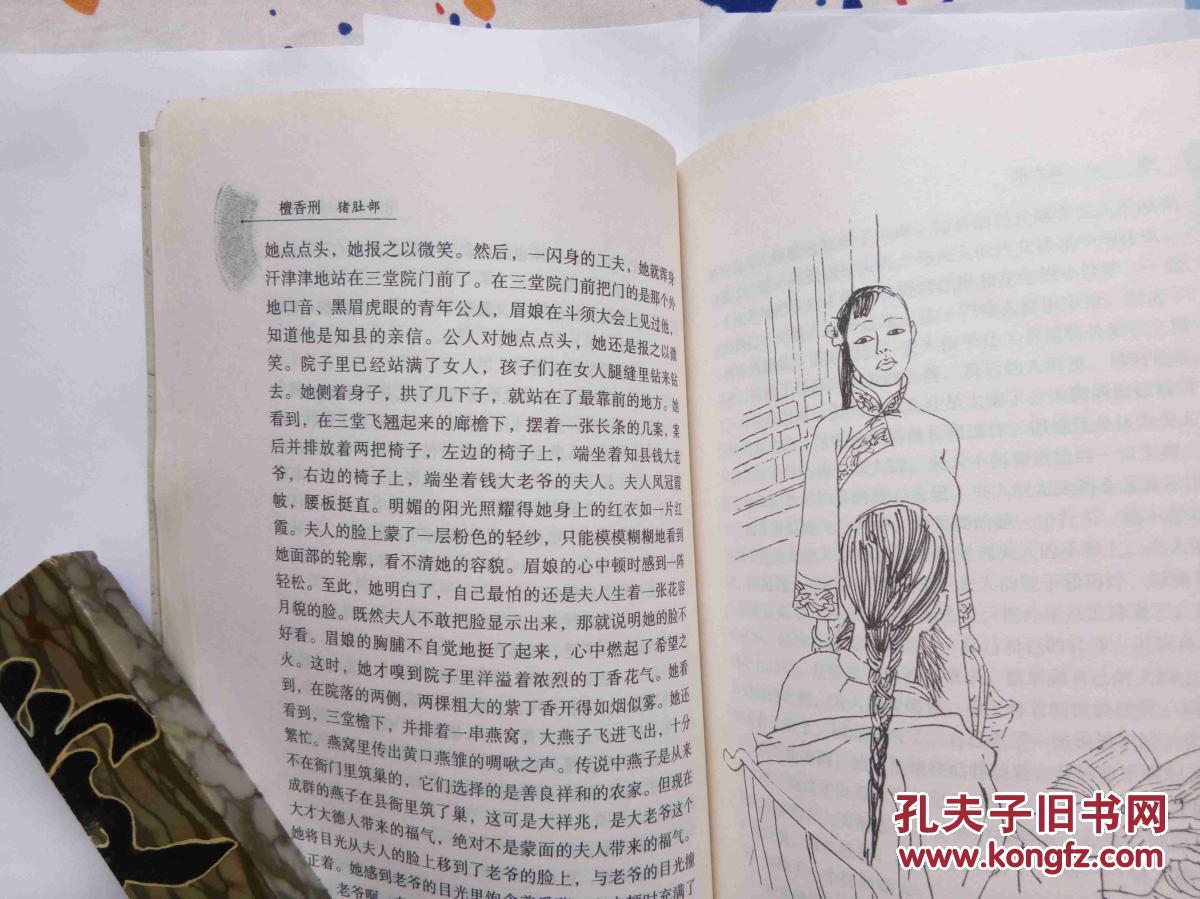 檀香刑 猪肚部
她点点头，她报之以微笑。然后，一闪身的工夫，她就浑身
汗津津地站在三堂院门前了。在三堂院门前把门的是那个外
地口音、黑眉虎眼的青年公人，眉娘在斗须大会上见过他，
知道他是知县的亲信。公人对她点点头，她还是报之以微
笑。院子里已经站满了女人，孩子们在女人腿缝里钻来钻
去。她侧着身子，拱了几下子，就站在了最靠前的地方。她
看到，在三堂飞翘起来的廊檐下，摆着一张长条的几案，案
后并排放着两把椅子，左边的椅子上，端坐着知县钱大老
爷，右边的椅子上，端坐着钱大老爷的夫人。夫人凤冠霞
帔，腰板挺直。明媚的阳光照耀得她身上的红衣如一片红
霞。夫人的脸上蒙了一层粉色的轻纱，只能模模糊糊地看到
她面部的轮廓，看不清她的容貌。眉娘的心中顿时感到一阵
轻松。至此，她明白了，自己最怕的还是夫人生着一张花容
月貌的脸。既然夫人不敢把脸显示出来，那就说明她的脸不
好看。眉娘的胸脯不自觉地挺了起来，心中燃起了希望之
火。这时，她才嗅到院子里洋溢着浓烈的丁香花气。她看
到，在院落的两侧，两棵粗大的紫丁香开得如烟似雾。她还
看到，三堂檐下，并排着一串燕窝，大燕子飞进飞出，十分
繁忙。燕窝里传出黄口燕雏的啁啾之声。传说中燕子是从来
不在衙门里筑巢的，它们选择的是善良祥和的农家。但现在
成群的燕子在县衙里筑了巢，这可是大祥兆，是大老爷这个
大才大德人带来的福气，绝对不是蒙面的夫人带来的福气。
她将目光从夫人的脸上移到了老爷的脸上，与老爷的目光撞
正着。她感到老爷的目光里饱含着
老爷啊，
顿时充满了
孔夫子旧书网
www.kongfz.com